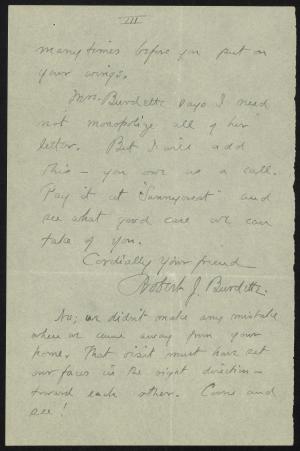 III
many times before you put on
your wings.
Mrs. Burdette says I need
not monopolize all of her
letter. But I will add
this — you owe us a call.
Pay it at "Sunnycrest" and
see what good care we can
take of you.
Cordially your friend
Robert J. Burdette.
No; we didn't make any mistake
when we came away from your
home. That visit must have set
our faces in the right direction —
toward each other. Come and
see!